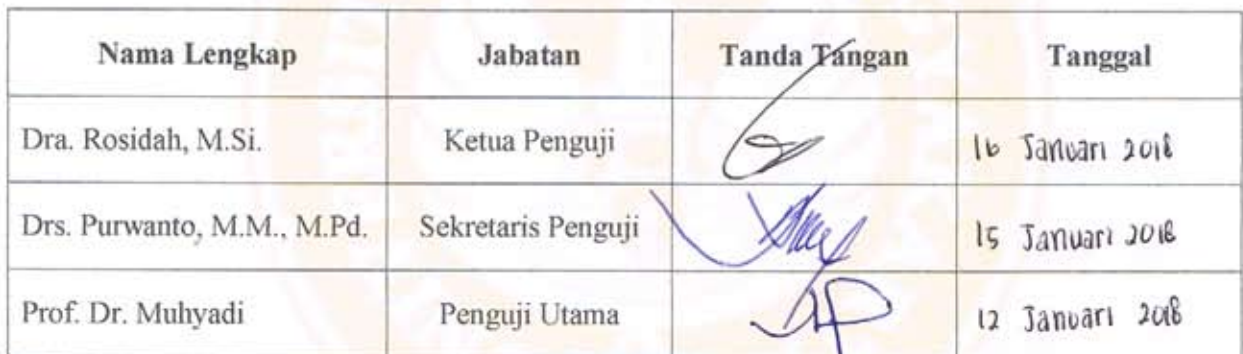 Nama Lengkap Jabatan Tanda Tangan Tanggal
Dra. Rosidah, M.Si. Ketua Penguji 16 Januari 2018
Drs. Purwanto, M.M., M.Pd. Sekretaris Penguji 15 Januari 2018
Prof. Dr. Muhyadi Penguji Utama 12 Januari 2018